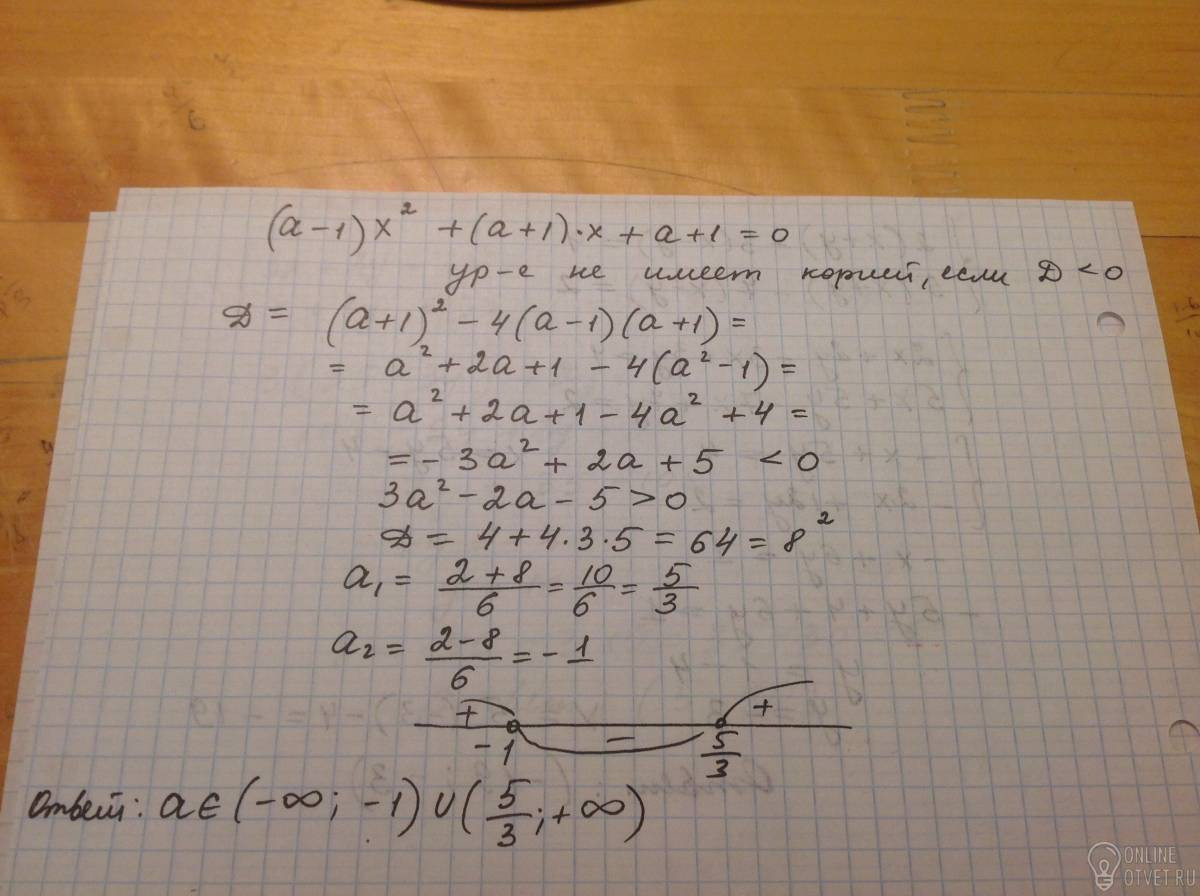 (a-1)x² + (a+1)·x + a+1 = 0
ур-е не имеет корней, если D < 0
D = (a+1)² - 4(a-1)(a+1) =
= a² + 2a + 1 - 4(a² - 1) =
= a² + 2a + 1 - 4a² + 4 =
= - 3a² + 2a + 5 < 0
3a² - 2a - 5 > 0
D = 4 + 4·3·5 = 64 = 8²
a₁ = (2+8)/6 = 10/6 = 5/3
a₂ = (2-8)/6 = -1
+ - +
-1 5/3
Ответ: a ∈ (-∞; -1) ∪ (5/3; +∞)
ONLINE
OTVET.RU